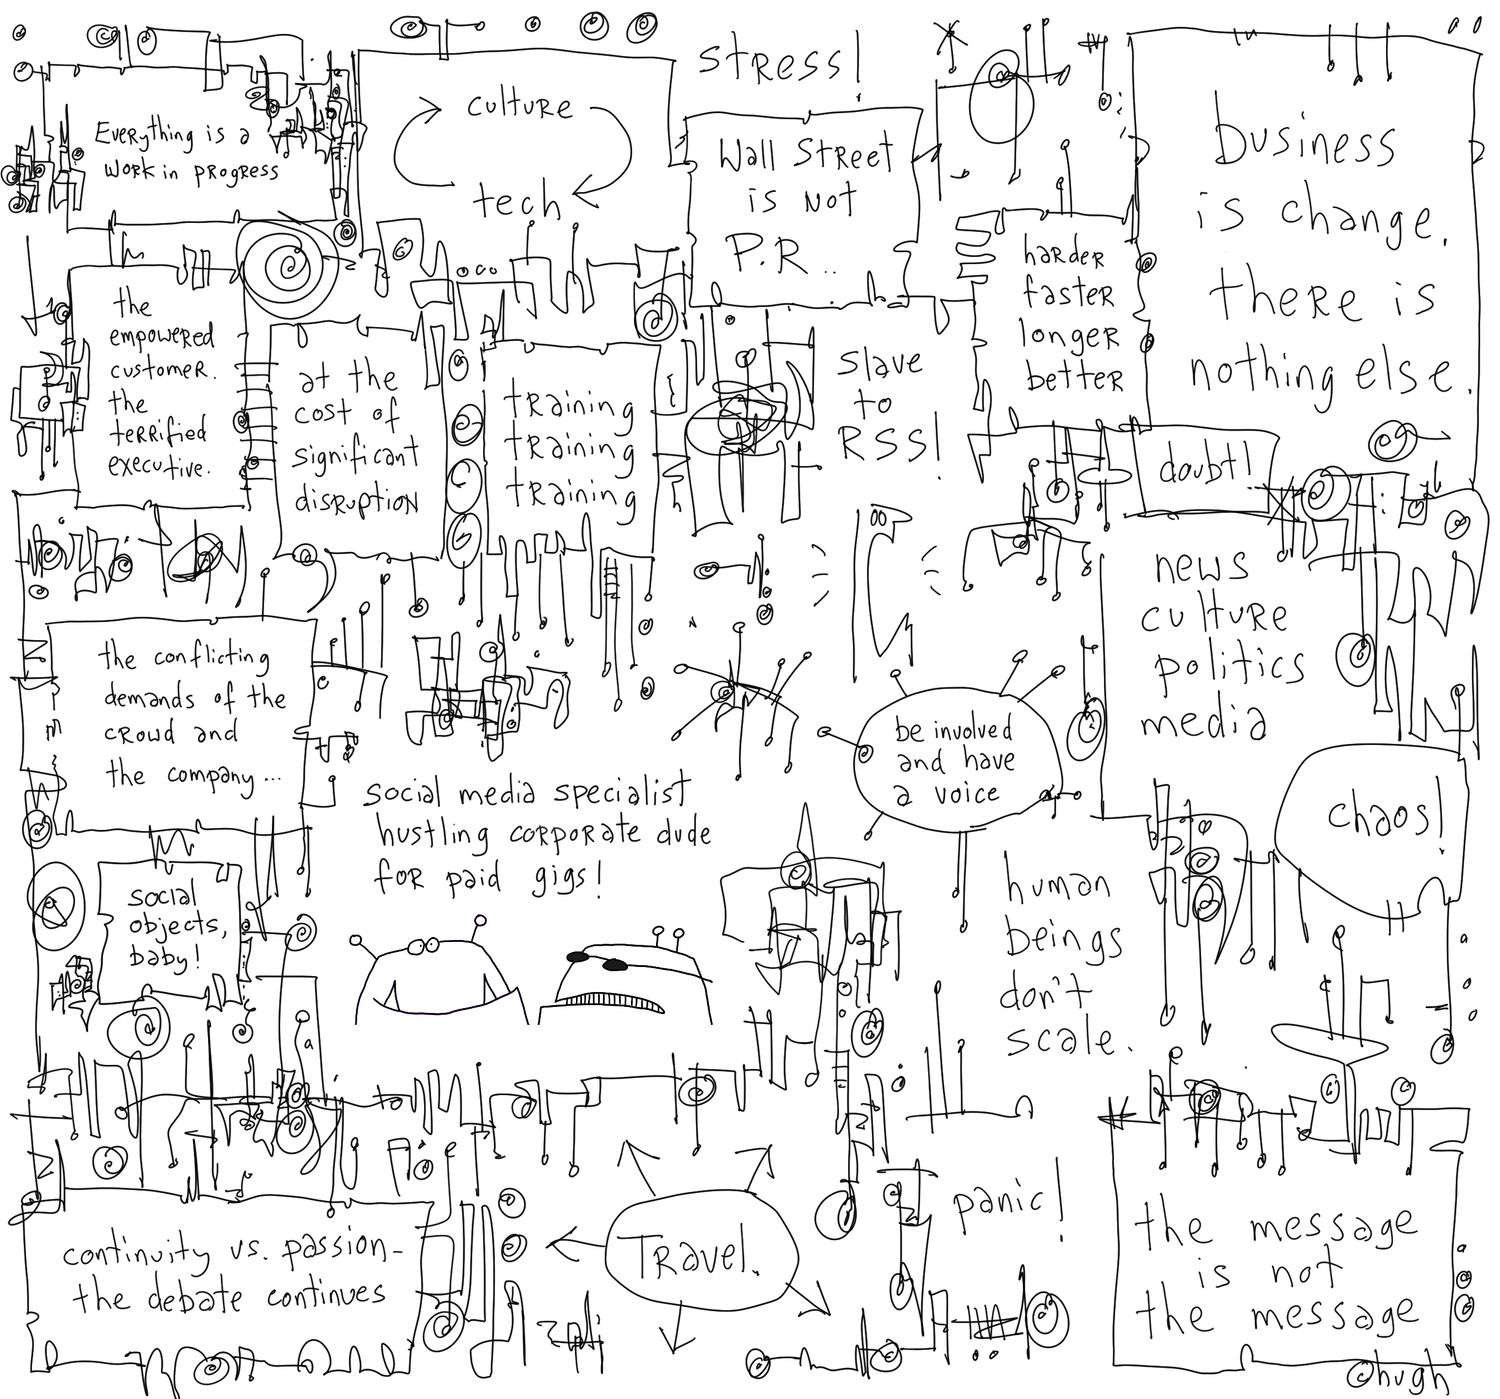 Everything is a
work in progress
culture
tech
stress!
Wall Street
is not
P.R...
business
is change.
there is
nothing else.
harder
faster
longer
better
the
empowered
customer.
the
terrified
executive.
at the
cost of
significant
disruption
training
training
training
slave
to
RSS!
doubt!
news
culture
politics
media
the conflicting
demands of the
crowd and
the company...
be involved
and have
a voice
chaos!
social media specialist
hustling corporate dude
for paid gigs!
social
objects,
baby!
human
beings
don't
scale.
panic!
continuity vs. passion-
the debate continues
Travel.
the message
is not
the message
@hugh